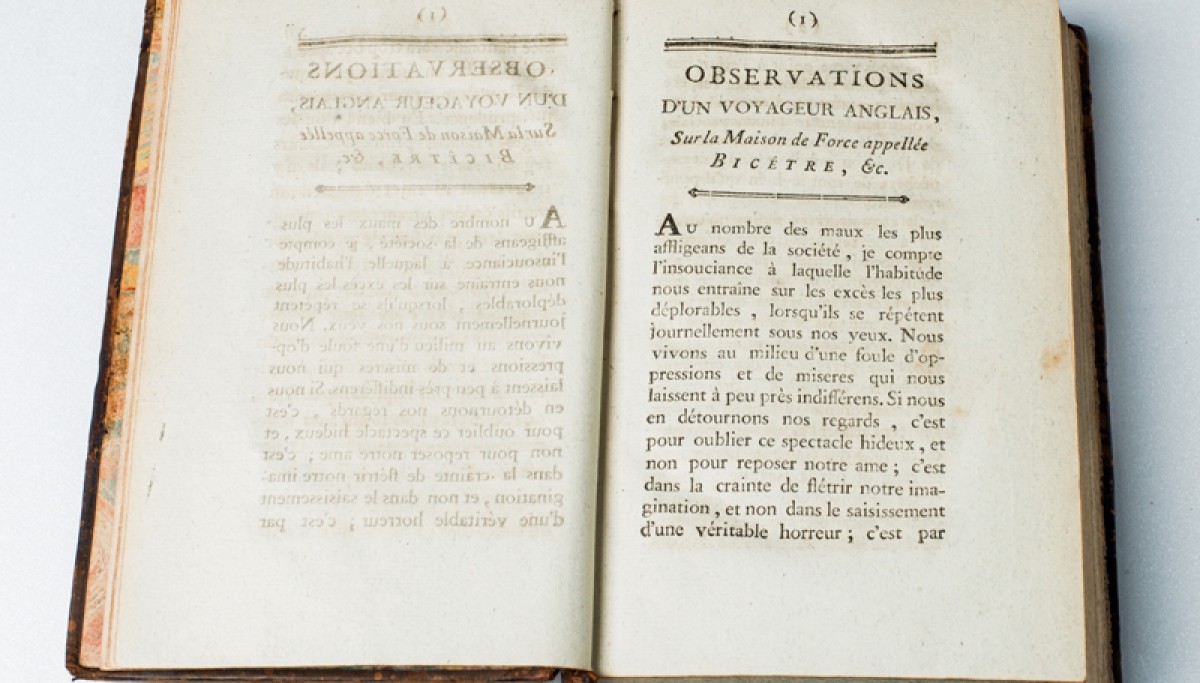 (1)
OBSERVATIONS
D'UN VOYAGEUR ANGLAIS,
Sur la Maison de Force appellée
BICÉTRE, &c.
AU nombre des maux les plus
affligeans de la société, je compte
l'insouciance à laquelle l'habitude
nous entraîne sur les excès les plus
déplorables, lorsqu'ils se répétent
journellement sous nos yeux. Nous
vivons au milieu d'une foule d'op-
pressions et de miseres qui nous
laissent à peu près indifférens. Si nous
en détournons nos regards, c'est
pour oublier ce spectacle hideux, et
non pour reposer notre ame; c'est
dans la crainte de flétrir notre ima-
gination, et non dans le saisissement
d'une véritable horreur; c'est par